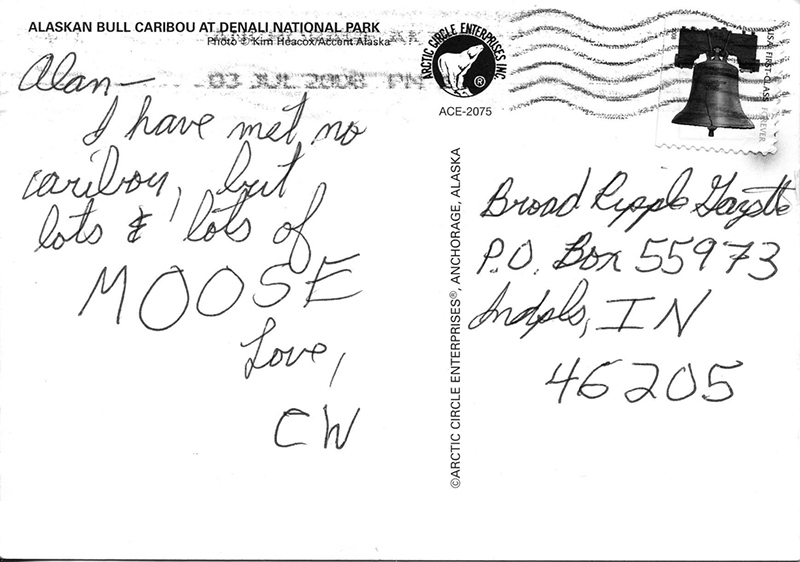 ALASKAN BULL CARIBOU AT DENALI NATIONAL PARK
Photo © Kim Heacox/Accent Alaska
03 JUL 2008 PM
Alan—
I have met no
caribou, but
lots & lots of
MOOSE
Love,
CW
ARCTIC CIRCLE ENTERPRISES INC.
®
ACE-2075
©ARCTIC CIRCLE ENTERPRISES®, ANCHORAGE, ALASKA
USA FIRST-CLASS FOREVER
Broad Ripple Gazette
P.O. Box 55973
Indpls, IN
46205